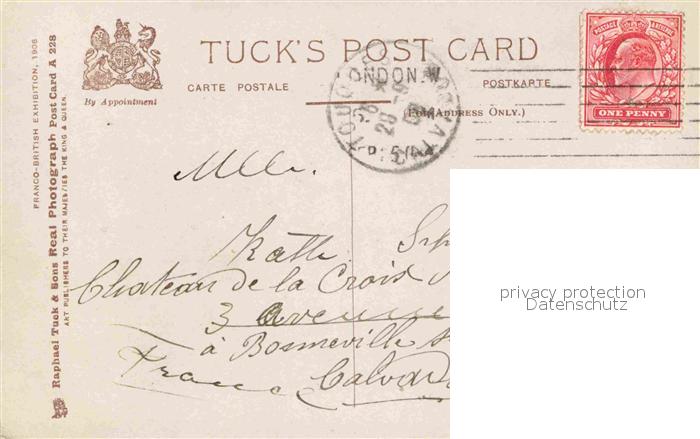 TUCK'S POST CARD
CARTE POSTALE
POSTKARTE
(For Address Only.)
By Appointment
POSTAGE & REVENUE
ONE PENNY
LONDON.W
FRANCO-BRITISH EXHIBITION, 1908
Raphael Tuck & Sons Real Photograph Post Card A 228
ART PUBLISHERS TO THEIR MAJESTIES THE KING & QUEEN.
Mlle.
Kathe
Chateau de la Croix
3 avenue
à Bonneville
France Calvad
privacy protection
Datenschutz